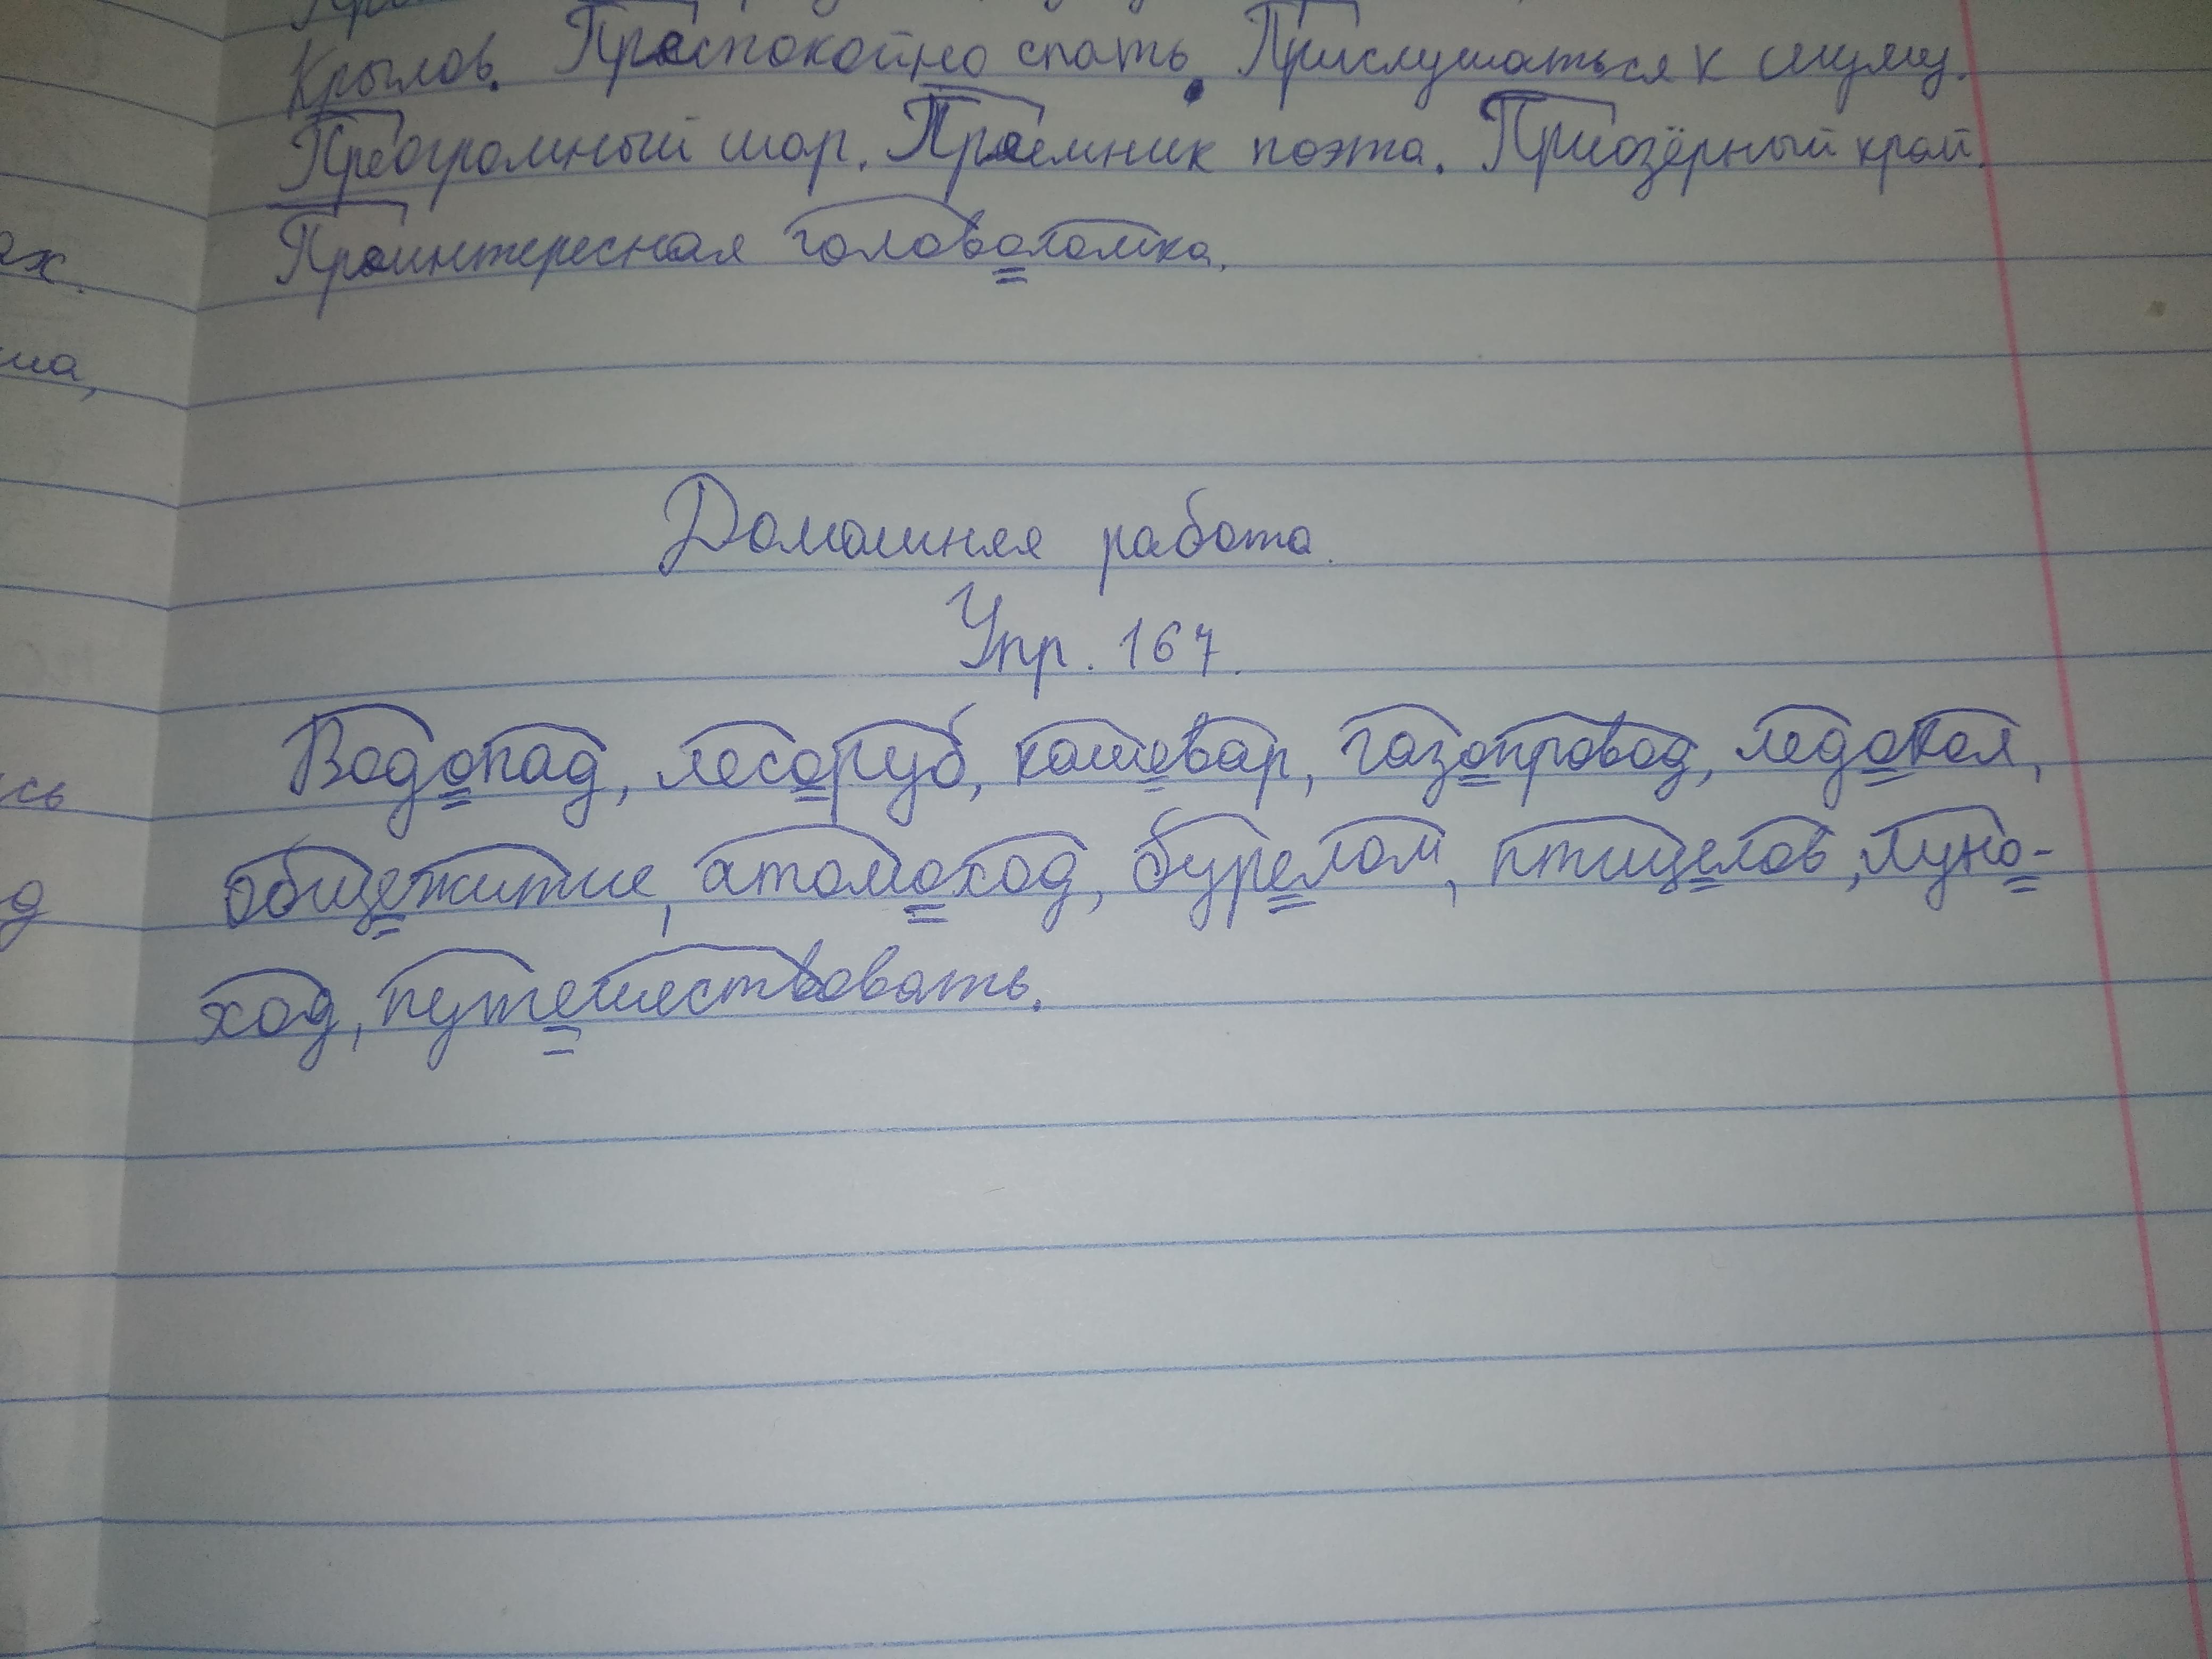 Крылов. Преспокойно спать. Прислушаться к шуму.
Преогромный шар. Преемник поэта. Приозёрный край.
Преинтересная головоломка.
ах.
ма,
Домашняя работа.
Упр. 167.
Водопад, лесоруб, кашевар, газопровод, ледокол,
сь
общежитие, атомоход, бурелом, птицелов, луно-
д
ход, путешествовать.